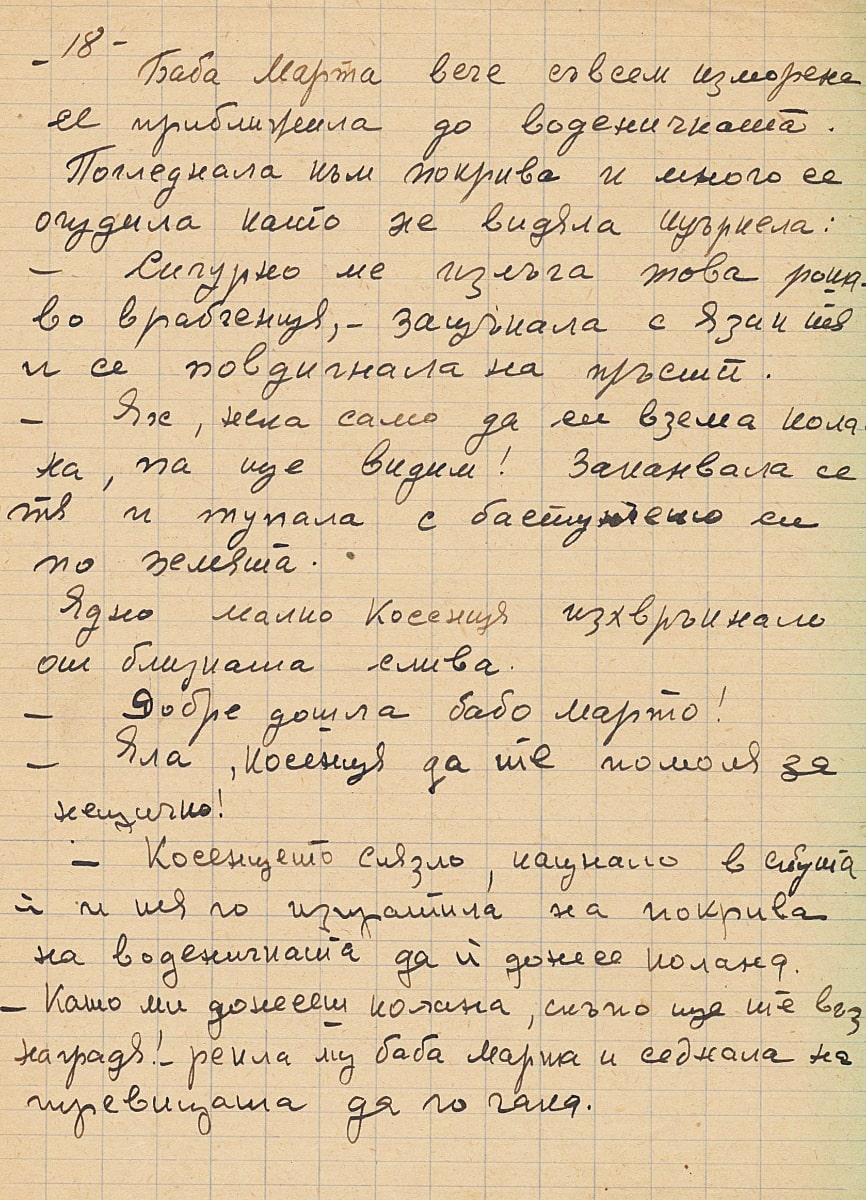 - 18 -
Баба Марта вече съвсем изморена
се приближила до воденичката.
Погледнала към покрива и много се
очудила като не видяла щъркела:
- Сигурно ме излъга това рошa-
во врабченця, - зацъкала с язик тя
и се повдигнала на пръсти.
- Ях, нека само да си взема кола-
на, па ще видим! Заканвала се
тя и тупала с бастунчето си
по земята.
Ядно малко Косенця изхвръкнало
от близката слива.
- Добре дошла бабо Марто!
- Яла, косенця да те помоля за
нещичко!
- Косенцето слязло, кацнало в скута
й и тя го изпратила на покрива
на воденичката да й донесе колана.
- Като ми донесеш колана, скъпо ще те въз
наградя! - рекла му баба Марта и седнала на
тревицата да го чака.